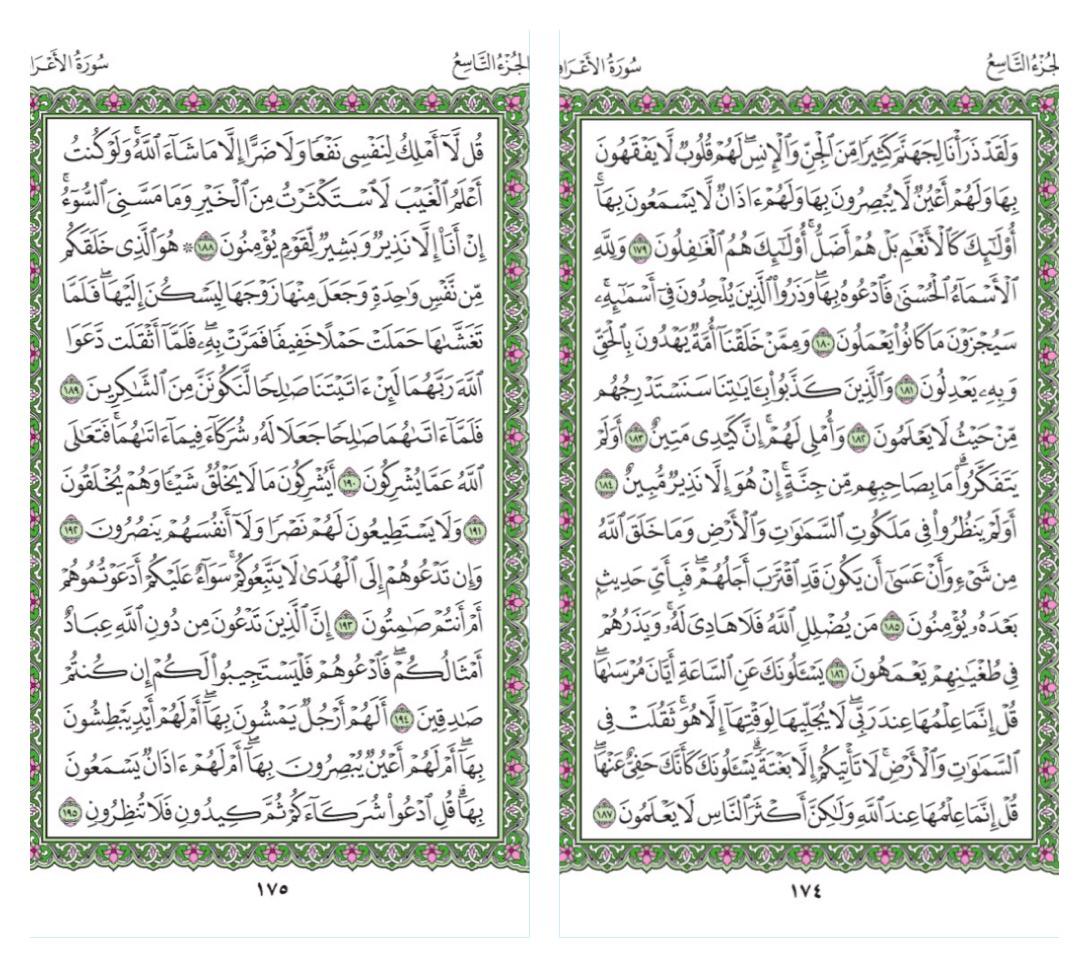 الجُزْءُ التَّاسِعُ
سُورَةُ الأَعْرَاف
وَلَقَدْ ذَرَأْنَا لِجَهَنَّمَ كَثِيرًا مِّنَ ٱلْجِنِّ وَٱلْإِنسِۖ لَهُمْ قُلُوبٌ لَّا يَفْقَهُونَ
بِهَا وَلَهُمْ أَعْيُنٌ لَّا يُبْصِرُونَ بِهَا وَلَهُمْ ءَاذَانٌ لَّا يَسْمَعُونَ بِهَآۚ
أُوْلَٰٓئِكَ كَٱلْأَنْعَٰمِ بَلْ هُمْ أَضَلُّۚ أُوْلَٰٓئِكَ هُمُ ٱلْغَٰفِلُونَ ١٧٩ وَلِلَّهِ
ٱلْأَسْمَآءُ ٱلْحُسْنَىٰ فَٱدْعُوهُ بِهَاۖ وَذَرُواْ ٱلَّذِينَ يُلْحِدُونَ فِىٓ أَسْمَٰٓئِهِۦۚ
سَيُجْزَوْنَ مَا كَانُواْ يَعْمَلُونَ ١٨٠ وَمِمَّنْ خَلَقْنَآ أُمَّةٌ يَهْدُونَ بِٱلْحَقِّ
وَبِهِۦ يَعْدِلُونَ ١٨١ وَٱلَّذِينَ كَذَّبُواْ بِـَٔايَٰتِنَا سَنَسْتَدْرِجُهُم
مِّنْ حَيْثُ لَا يَعْلَمُونَ ١٨٢ وَأُمْلِى لَهُمْۚ إِنَّ كَيْدِى مَتِينٌ ١٨٣ أَوَلَمْ
يَتَفَكَّرُواْۗ مَا بِصَاحِبِهِم مِّن جِنَّةٍۚ إِنْ هُوَ إِلَّا نَذِيرٌ مُّبِينٌ ١٨٤
أَوَلَمْ يَنظُرُواْ فِى مَلَكُوتِ ٱلسَّمَٰوَٰتِ وَٱلْأَرْضِ وَمَا خَلَقَ ٱللَّهُ
مِن شَىْءٍ وَأَنْ عَسَىٰٓ أَن يَكُونَ قَدِ ٱقْتَرَبَ أَجَلُهُمْۖ فَبِأَىِّ حَدِيثٍۭ
بَعْدَهُۥ يُؤْمِنُونَ ١٨٥ مَن يُضْلِلِ ٱللَّهُ فَلَا هَادِىَ لَهُۥۚ وَيَذَرُهُمْ
فِى طُغْيَٰنِهِمْ يَعْمَهُونَ ١٨٦ يَسْـَٔلُونَكَ عَنِ ٱلسَّاعَةِ أَيَّانَ مُرْسَىٰهَاۖ
قُلْ إِنَّمَا عِلْمُهَا عِندَ رَبِّىۖ لَا يُجَلِّيهَا لِوَقْتِهَآ إِلَّا هُوَۚ ثَقُلَتْ فِى
ٱلسَّمَٰوَٰتِ وَٱلْأَرْضِۚ لَا تَأْتِيكُمْ إِلَّا بَغْتَةًۗ يَسْـَٔلُونَكَ كَأَنَّكَ حَفِىٌّ عَنْهَاۖ
قُلْ إِنَّمَا عِلْمُهَا عِندَ ٱللَّهِ وَلَٰكِنَّ أَكْثَرَ ٱلنَّاسِ لَا يَعْلَمُونَ ١٨٧
١٧٤
الجُزْءُ التَّاسِعُ
سُورَةُ الأَعْرَاف
قُل لَّآ أَمْلِكُ لِنَفْسِى نَفْعًا وَلَا ضَرًّا إِلَّا مَا شَآءَ ٱللَّهُۚ وَلَوْ كُنتُ
أَعْلَمُ ٱلْغَيْبَ لَٱسْتَكْثَرْتُ مِنَ ٱلْخَيْرِ وَمَا مَسَّنِىَ ٱلسُّوٓءُۚ
إِنْ أَنَا۠ إِلَّا نَذِيرٌ وَبَشِيرٌ لِّقَوْمٍ يُؤْمِنُونَ ١٨٨ ۞ هُوَ ٱلَّذِى خَلَقَكُم
مِّن نَّفْسٍ وَٰحِدَةٍ وَجَعَلَ مِنْهَا زَوْجَهَا لِيَسْكُنَ إِلَيْهَاۖ فَلَمَّا
تَغَشَّىٰهَا حَمَلَتْ حَمْلًا خَفِيفًا فَمَرَّتْ بِهِۦۖ فَلَمَّآ أَثْقَلَت دَّعَوَا
ٱللَّهَ رَبَّهُمَا لَئِنْ ءَاتَيْتَنَا صَٰلِحًا لَّنَكُونَنَّ مِنَ ٱلشَّٰكِرِينَ ١٨٩
فَلَمَّآ ءَاتَىٰهُمَا صَٰلِحًا جَعَلَا لَهُۥ شُرَكَآءَ فِيمَآ ءَاتَىٰهُمَاۚ فَتَعَٰلَى
ٱللَّهُ عَمَّا يُشْرِكُونَ ١٩٠ أَيُشْرِكُونَ مَا لَا يَخْلُقُ شَيْـًٔا وَهُمْ يُخْلَقُونَ
١٩١ وَلَا يَسْتَطِيعُونَ لَهُمْ نَصْرًا وَلَآ أَنفُسَهُمْ يَنصُرُونَ ١٩٢
وَإِن تَدْعُوهُمْ إِلَى ٱلْهُدَىٰ لَا يَتَّبِعُوكُمْۚ سَوَآءٌ عَلَيْكُمْ أَدَعَوْتُمُوهُمْ
أَمْ أَنتُمْ صَٰمِتُونَ ١٩٣ إِنَّ ٱلَّذِينَ تَدْعُونَ مِن دُونِ ٱللَّهِ عِبَادٌ
أَمْثَالُكُمْۖ فَٱدْعُوهُمْ فَلْيَسْتَجِيبُواْ لَكُمْ إِن كُنتُمْ
صَٰدِقِينَ ١٩٤ أَلَهُمْ أَرْجُلٌ يَمْشُونَ بِهَآۖ أَمْ لَهُمْ أَيْدٍ يَبْطِشُونَ
بِهَآۖ أَمْ لَهُمْ أَعْيُنٌ يُبْصِرُونَ بِهَآۖ أَمْ لَهُمْ ءَاذَانٌ يَسْمَعُونَ
بِهَاۗ قُلِ ٱدْعُواْ شُرَكَآءَكُمْ ثُمَّ كِيدُونِ فَلَا تُنظِرُونِ ١٩٥
١٧٥